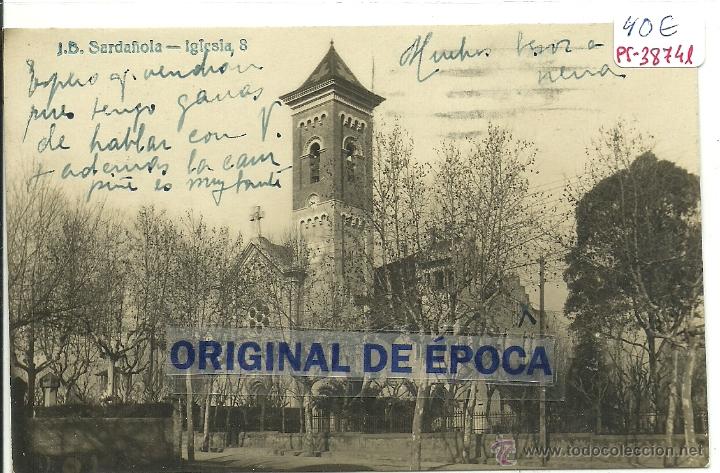 J.B. Sardañola — Iglesia, 8
Espero q. vendrán
pues tengo ganas
de hablar con V.
y además la
es muy
Muchos besos a
nena
40€
PT-38741
ORIGINAL DE ÉPOCA
www.todocoleccion.net